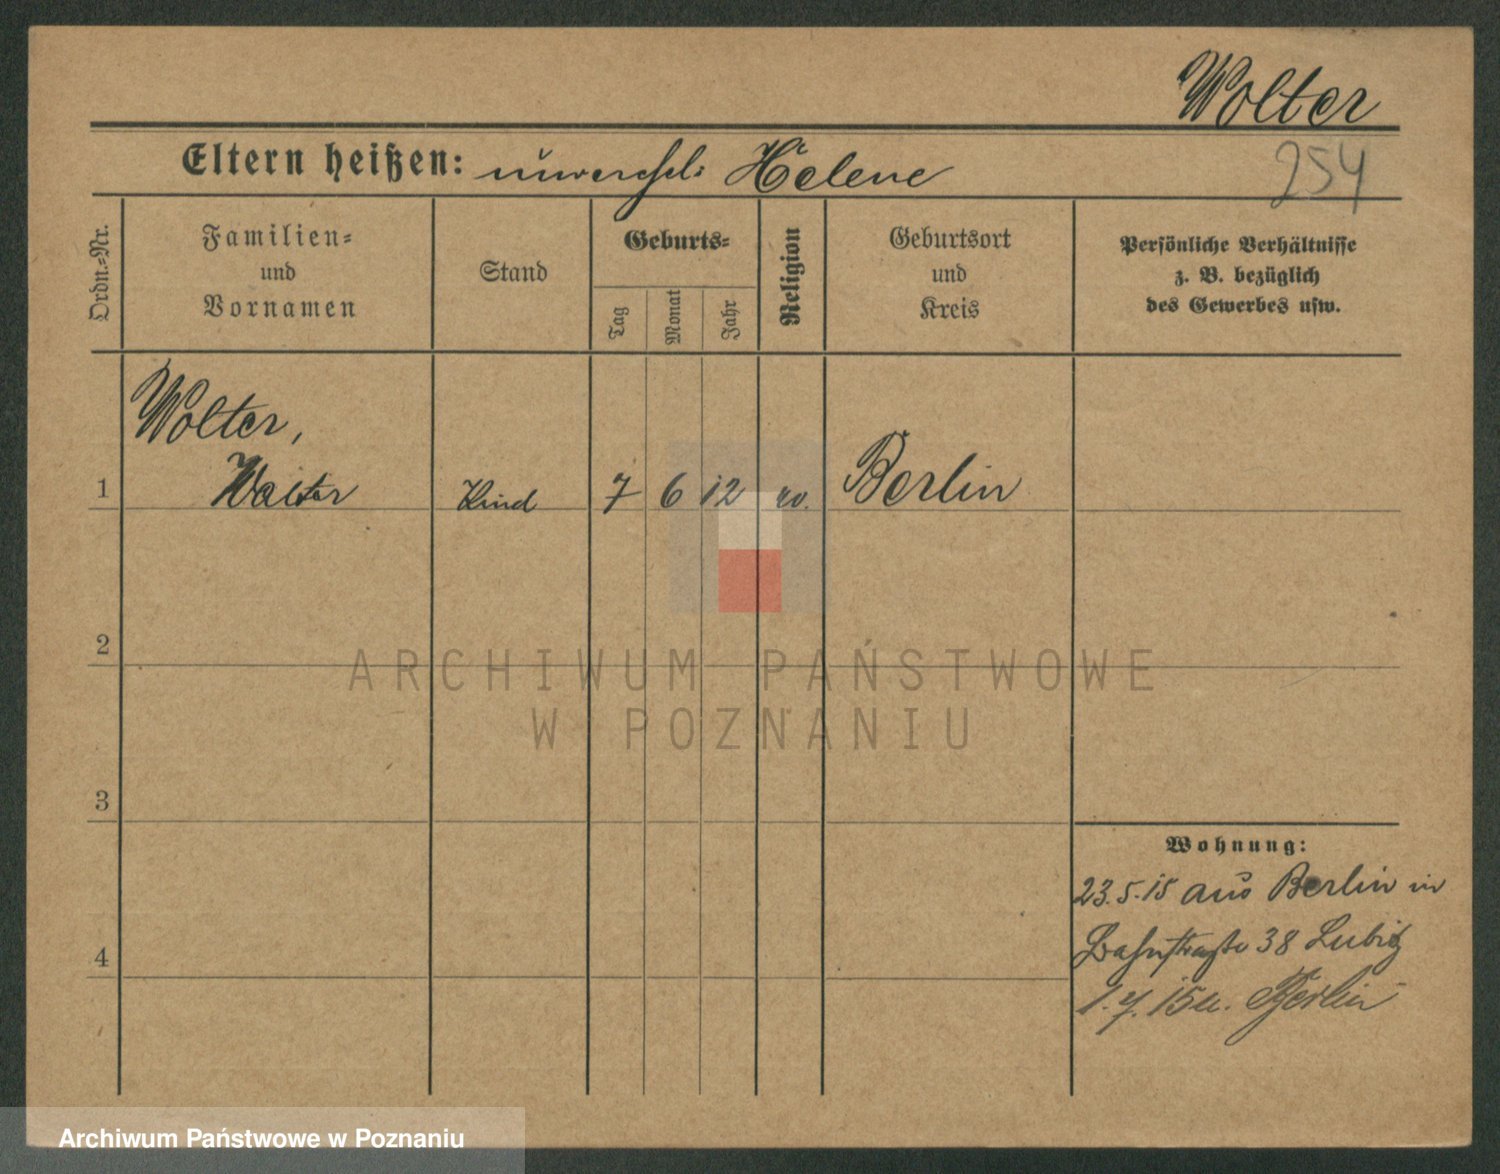 Wolter
Eltern heißen: unverehel: Helene
254
Ordn.=Nr.
Familien=
und
Vornamen
Stand
Geburts=
Tag
Monat
Jahr
Religion
Geburtsort
und
Kreis
Persönliche Verhältnisse
z. B. bezüglich
des Gewerbes usw.
Wolter,
1 Walter Kind 7 6 12 ev. Berlin
2
ARCHIWUM PAŃSTWOWE
W POZNANIU
3
Wohnung:
23.5.15 aus Berlin in
Bahnstraße 38
4
1.7.15 n. Berlin
Archiwum Państwowe w Poznaniu